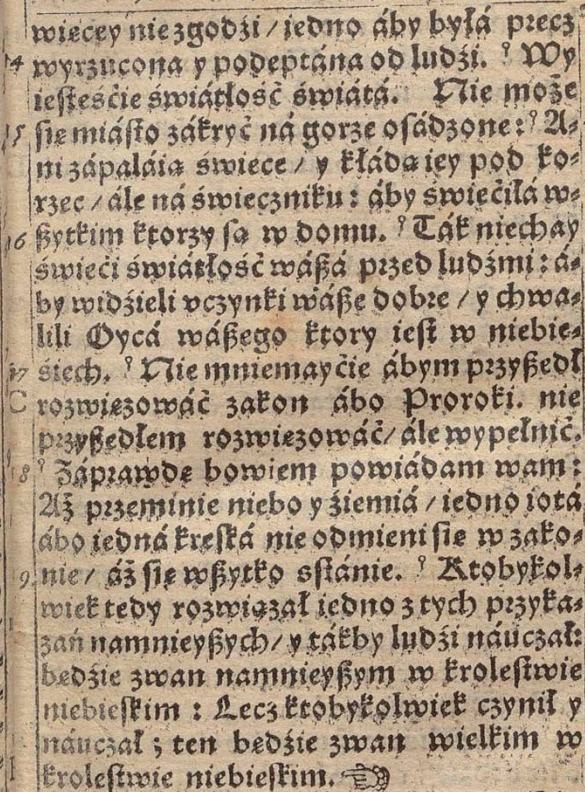 więcey nie zgodźi / jedno áby byłá precz
14 wyrzucona y podeptána od ludźi. ? Wy
iesteśćie świátłość świátá. Nie może
15 się miásto zákryć ná gorze osádzone: ? A-
ni zápaláią świece / y kłádą iey pod ko-
rzec / ále ná świeczniku : áby świećiłá w-
16 ßytkim ktorzy są w domu. ? Ták niechay
świeći świátłość wáßá przed ludźmi : á-
by widźieli vczynki wáße dobre / y chwa-
lili Oycá wáßego ktory iest w niebie-
17 śiech. ? Nie mniemayćie ábym przyßedł
C rozwięzowáć zakon ábo Proroki. nie
przyßedłem rozwięzowáć / ále wypełnić.
18 ? Záprawdę bowiem powiádam wam :
Aż przeminie niebo y źiemiá / iedno iotá
ábo iedná kreská nie odmieni się w zako-
9. nie / áż się wßytko sstánie. ? Ktobykol-
wiek tedy rozwiązał iedno z tych przyka-
zań namnieyßych / y tákby ludźi náuczał:
będźie zwan namnieyßym w krolestwie
niebieskim : Lecz ktobykolwiek czynił y
náuczał ; ten będźie zwan wielkim w
krolestwie niebieskim. ☜